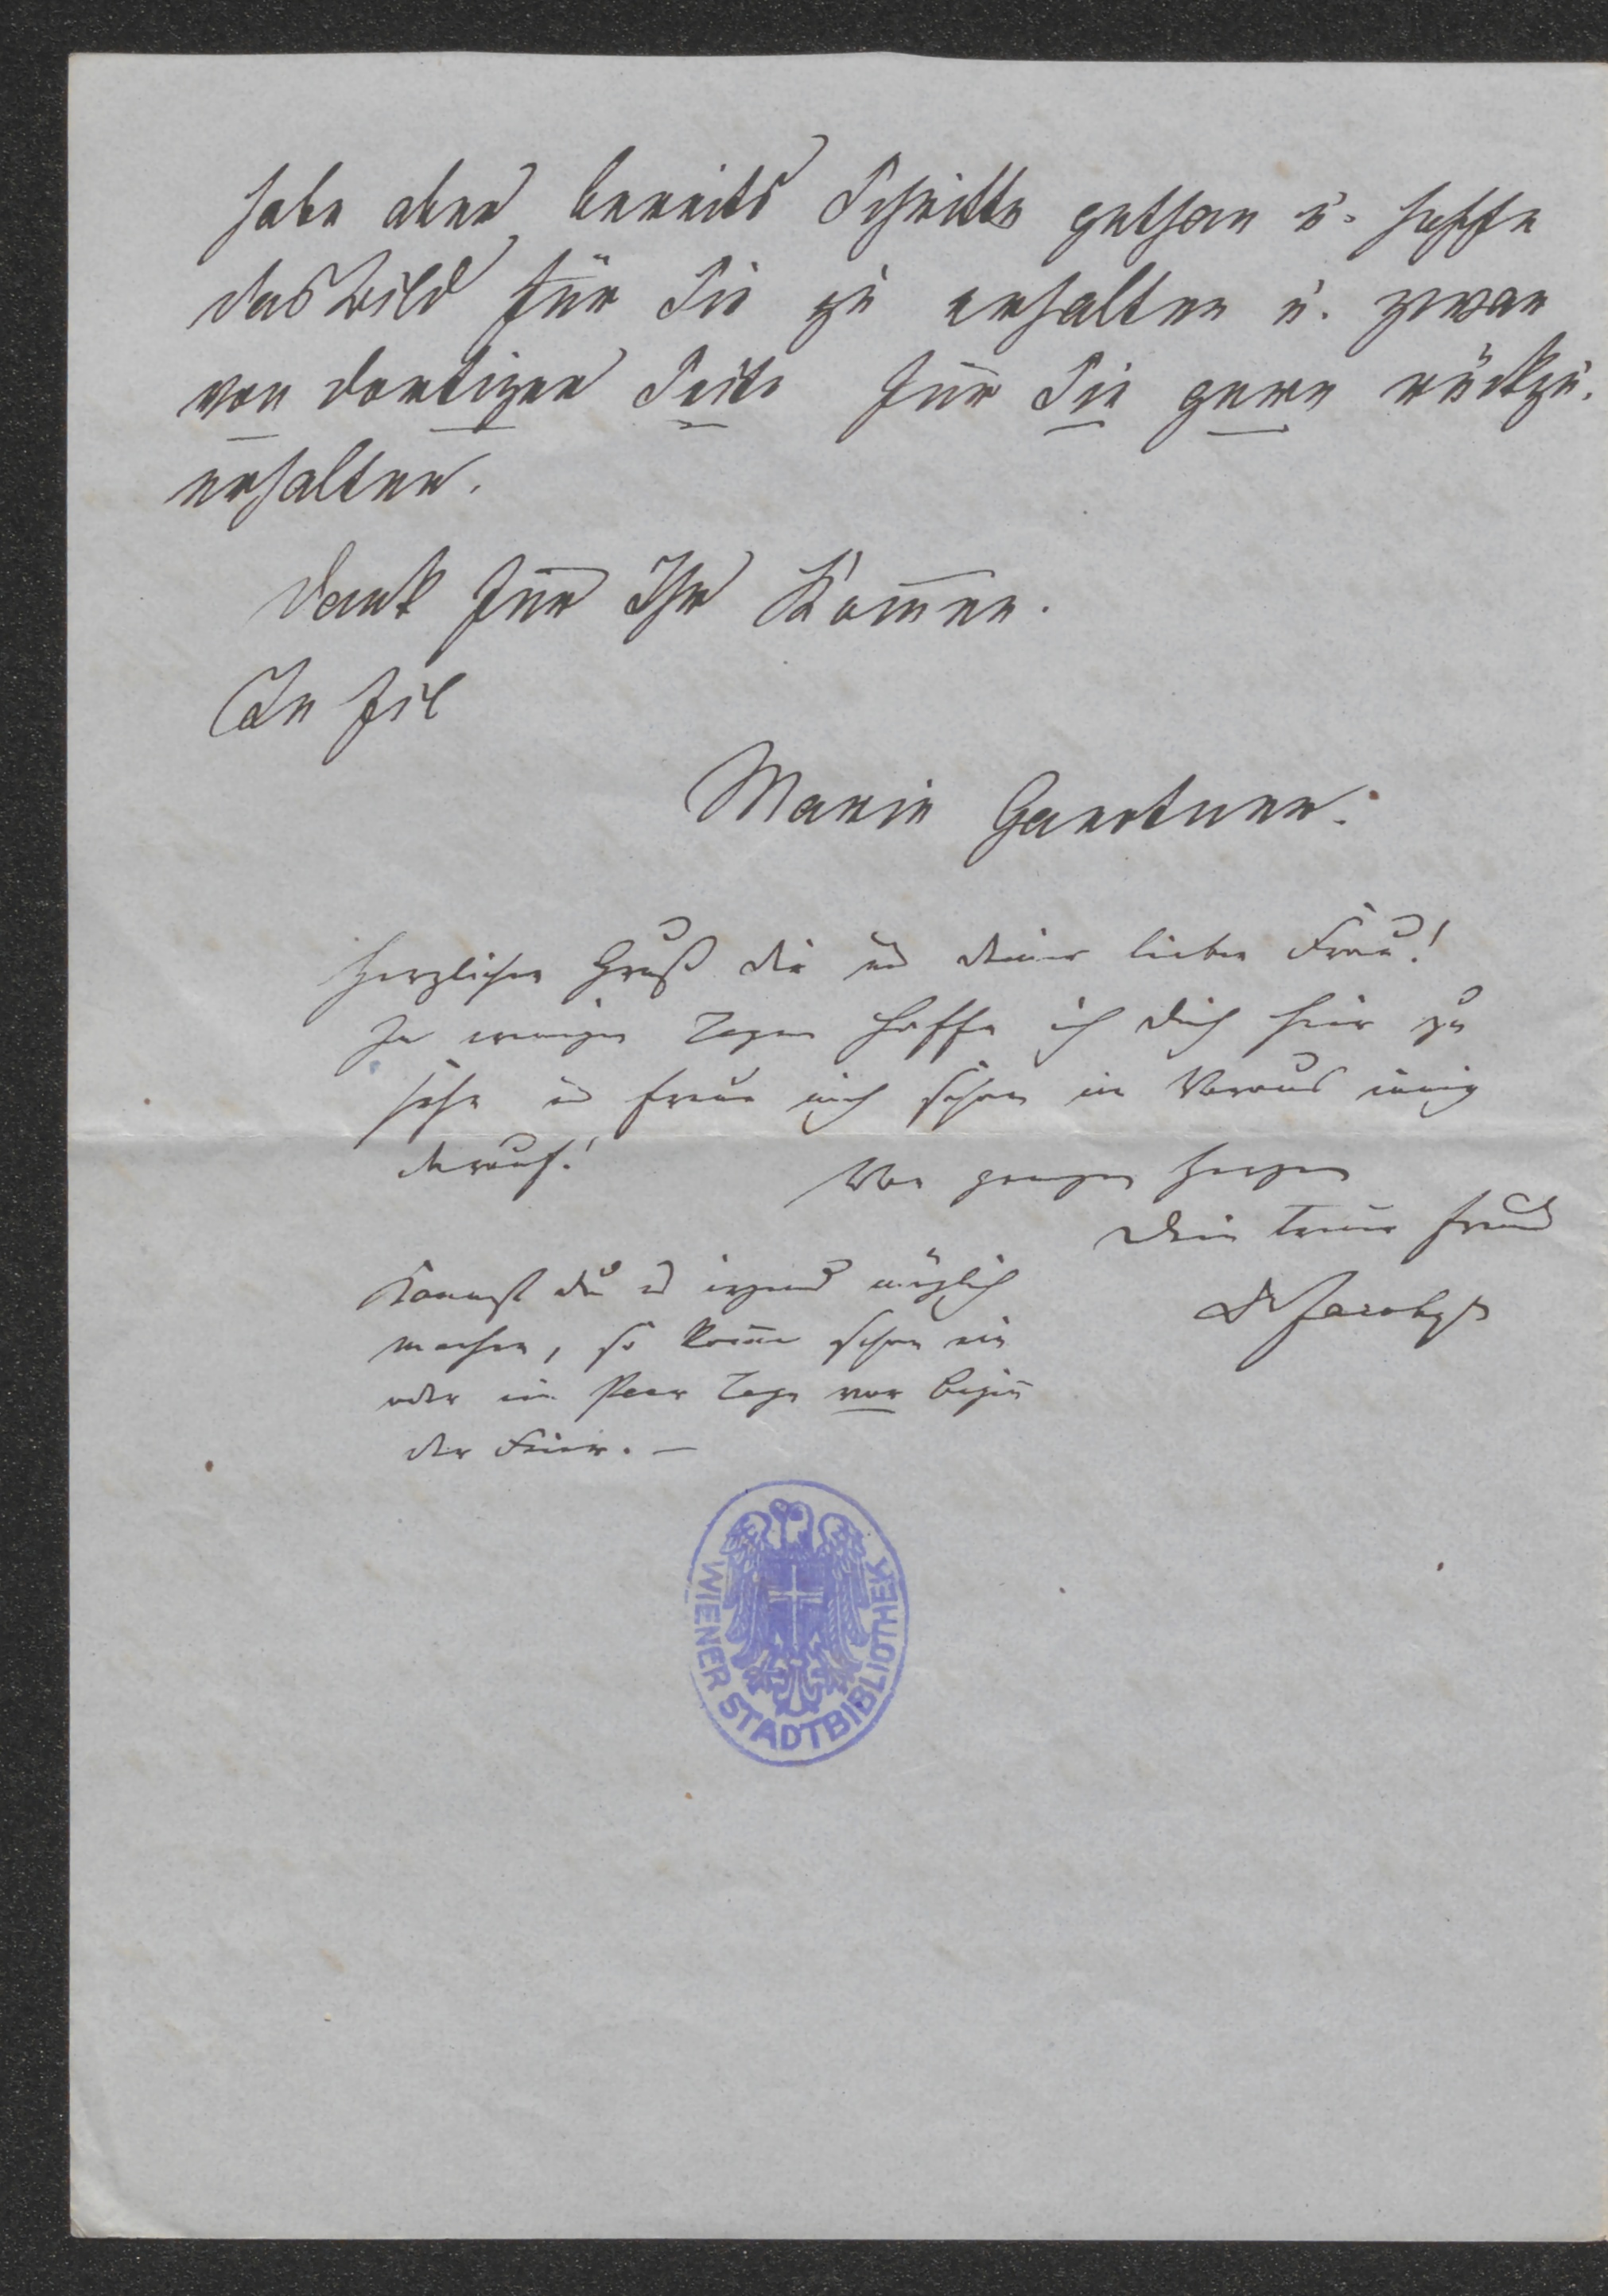 habe aber bereits Schritte gethan u. hoffe
das Bild für Sie zu erhalten u. zwar
von dortiger Seite für Sie gern rückzu-
erhalten.
Dank für Ihr Kom̅en.
In Eil
Marie Gaertner.
Herzlichen Gruß dir und deiner lieben Frau!
In wenigen Tagen hoffe ich dich hier zu
sehen u freue mich schon im Voraus innig
darauf!
Von ganzem Herzen
Dein treuer Freund
Kannst du es irgend möglich
machen, so kom̅e schon ein
oder ein Paar Tage vor Begin̅
der Feier. —
DrJacoby
WIENER STADTBIBLIOTHEK